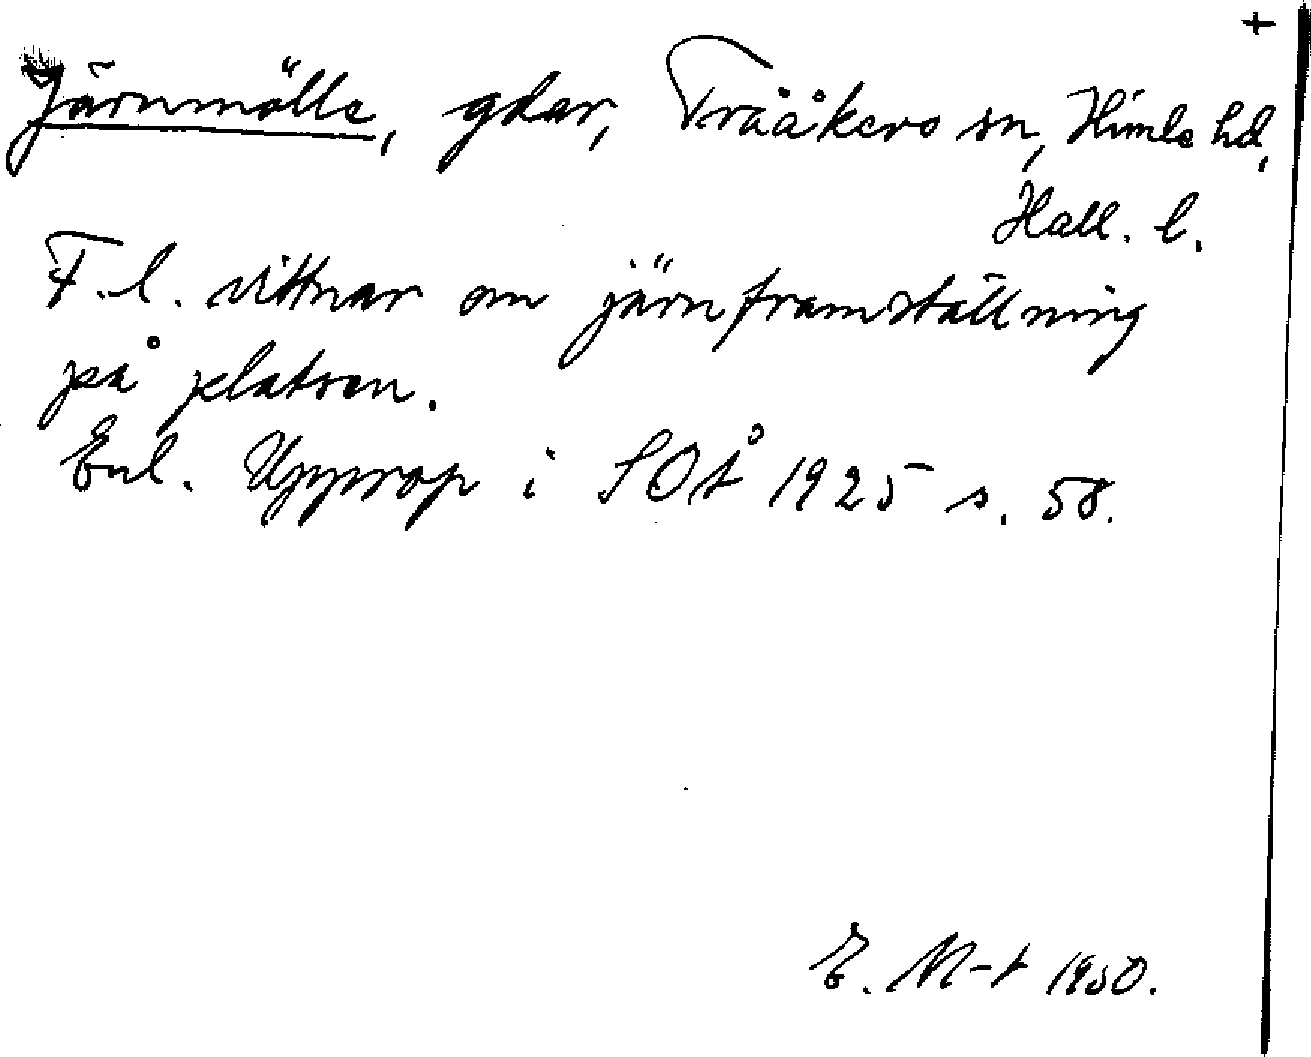 +
Järnmölle, gdar, Trååkers sn, Himle hd,
Hall. l.
F. l. vittnar om järnframställning
på platsen.
Enl. Upprop i SOÅ 1925 s. 58.
E. M-t 1950.